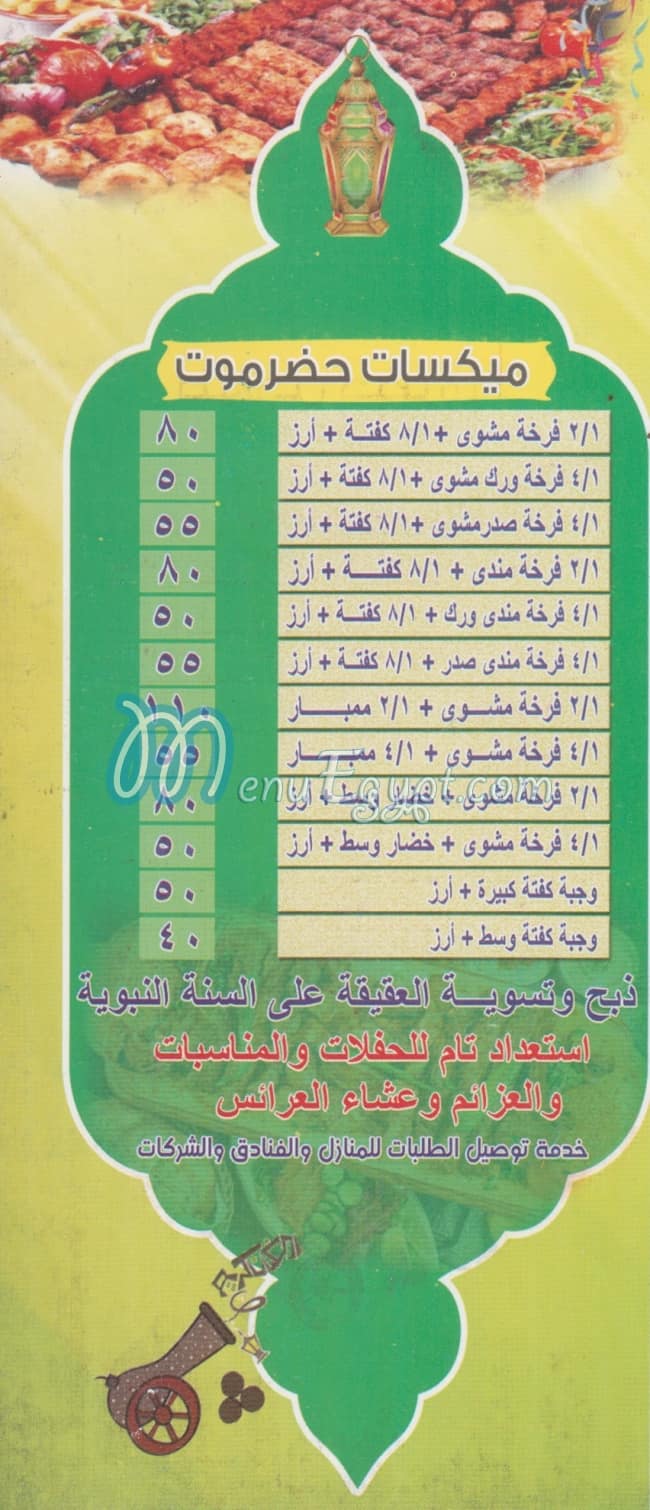 ميكسات حضرموت
٢/١ فرخة مشوى +٨/١ كفتــة + أرز ٨٠
٤/١ فرخة ورك مشوى +٨/١ كفتة + أرز ٥٠
٤/١ فرخة صدرمشوى +٨/١ كفتة + أرز ٥٥
٢/١ فرخة مندى + ٨/١ كفتــــة + أرز ٨٠
٤/١ فرخة مندى ورك + ٨/١ كفتــة + أرز ٥٠
٤/١ فرخة مندى صدر + ٨/١ كفتــة + أرز ٥٥
٢/١ فرخة مشــوى + ٢/١ ممبـــــار ١١٠
٤/١ فرخة مشــوى + ٤/١ ممبـــــار ٥٥
٢/١ فرخة مشوى + خضار وسط + أرز ٨٠
٤/١ فرخة مشوى + خضار وسط + أرز ٥٠
وجبة كفتة كبيرة + أرز ٥٠
وجبة كفتة وسط + أرز ٤٠
MenuEgypt.com
ذبح وتسويـــة العقيقة على السنة النبوية
استعداد تام للحفلات والمناسبات
والعزائم وعشاء العرائس
خدمة توصيل الطلبات للمنازل والفنادق والشركات